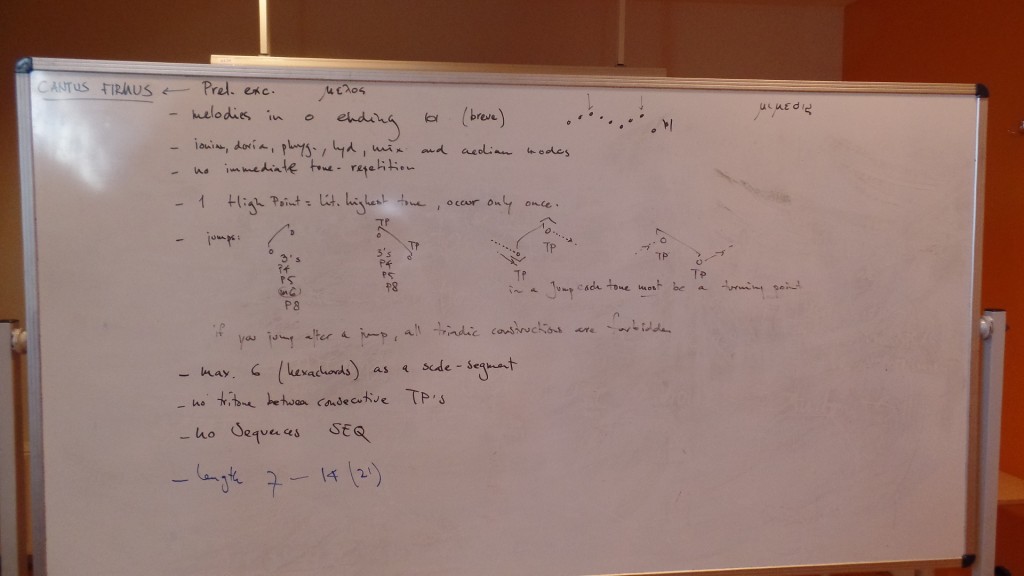 CANTUS FIRMUS ← Prel. exc. μελος μιμεσις
- melodies in o ending (breve)
- ionian, dorian, phryg., lyd, mix and aeolian modes
- no immediate tone-repetition
- 1 High Point = lit. highest tone, occur only once.
- jumps: TP TP TP TP TP TP
3's 3's
P4 P4
P5 P5
m6! P8
P8
in a jump each tone must be a turning point
if you jump after a jump, all triadic constructions are forbidden
- max. 6 (hexachords) as a scale-segment
- no tritone between consecutive TP's
- no Sequences SEQ
- length 7 - 14 (21)